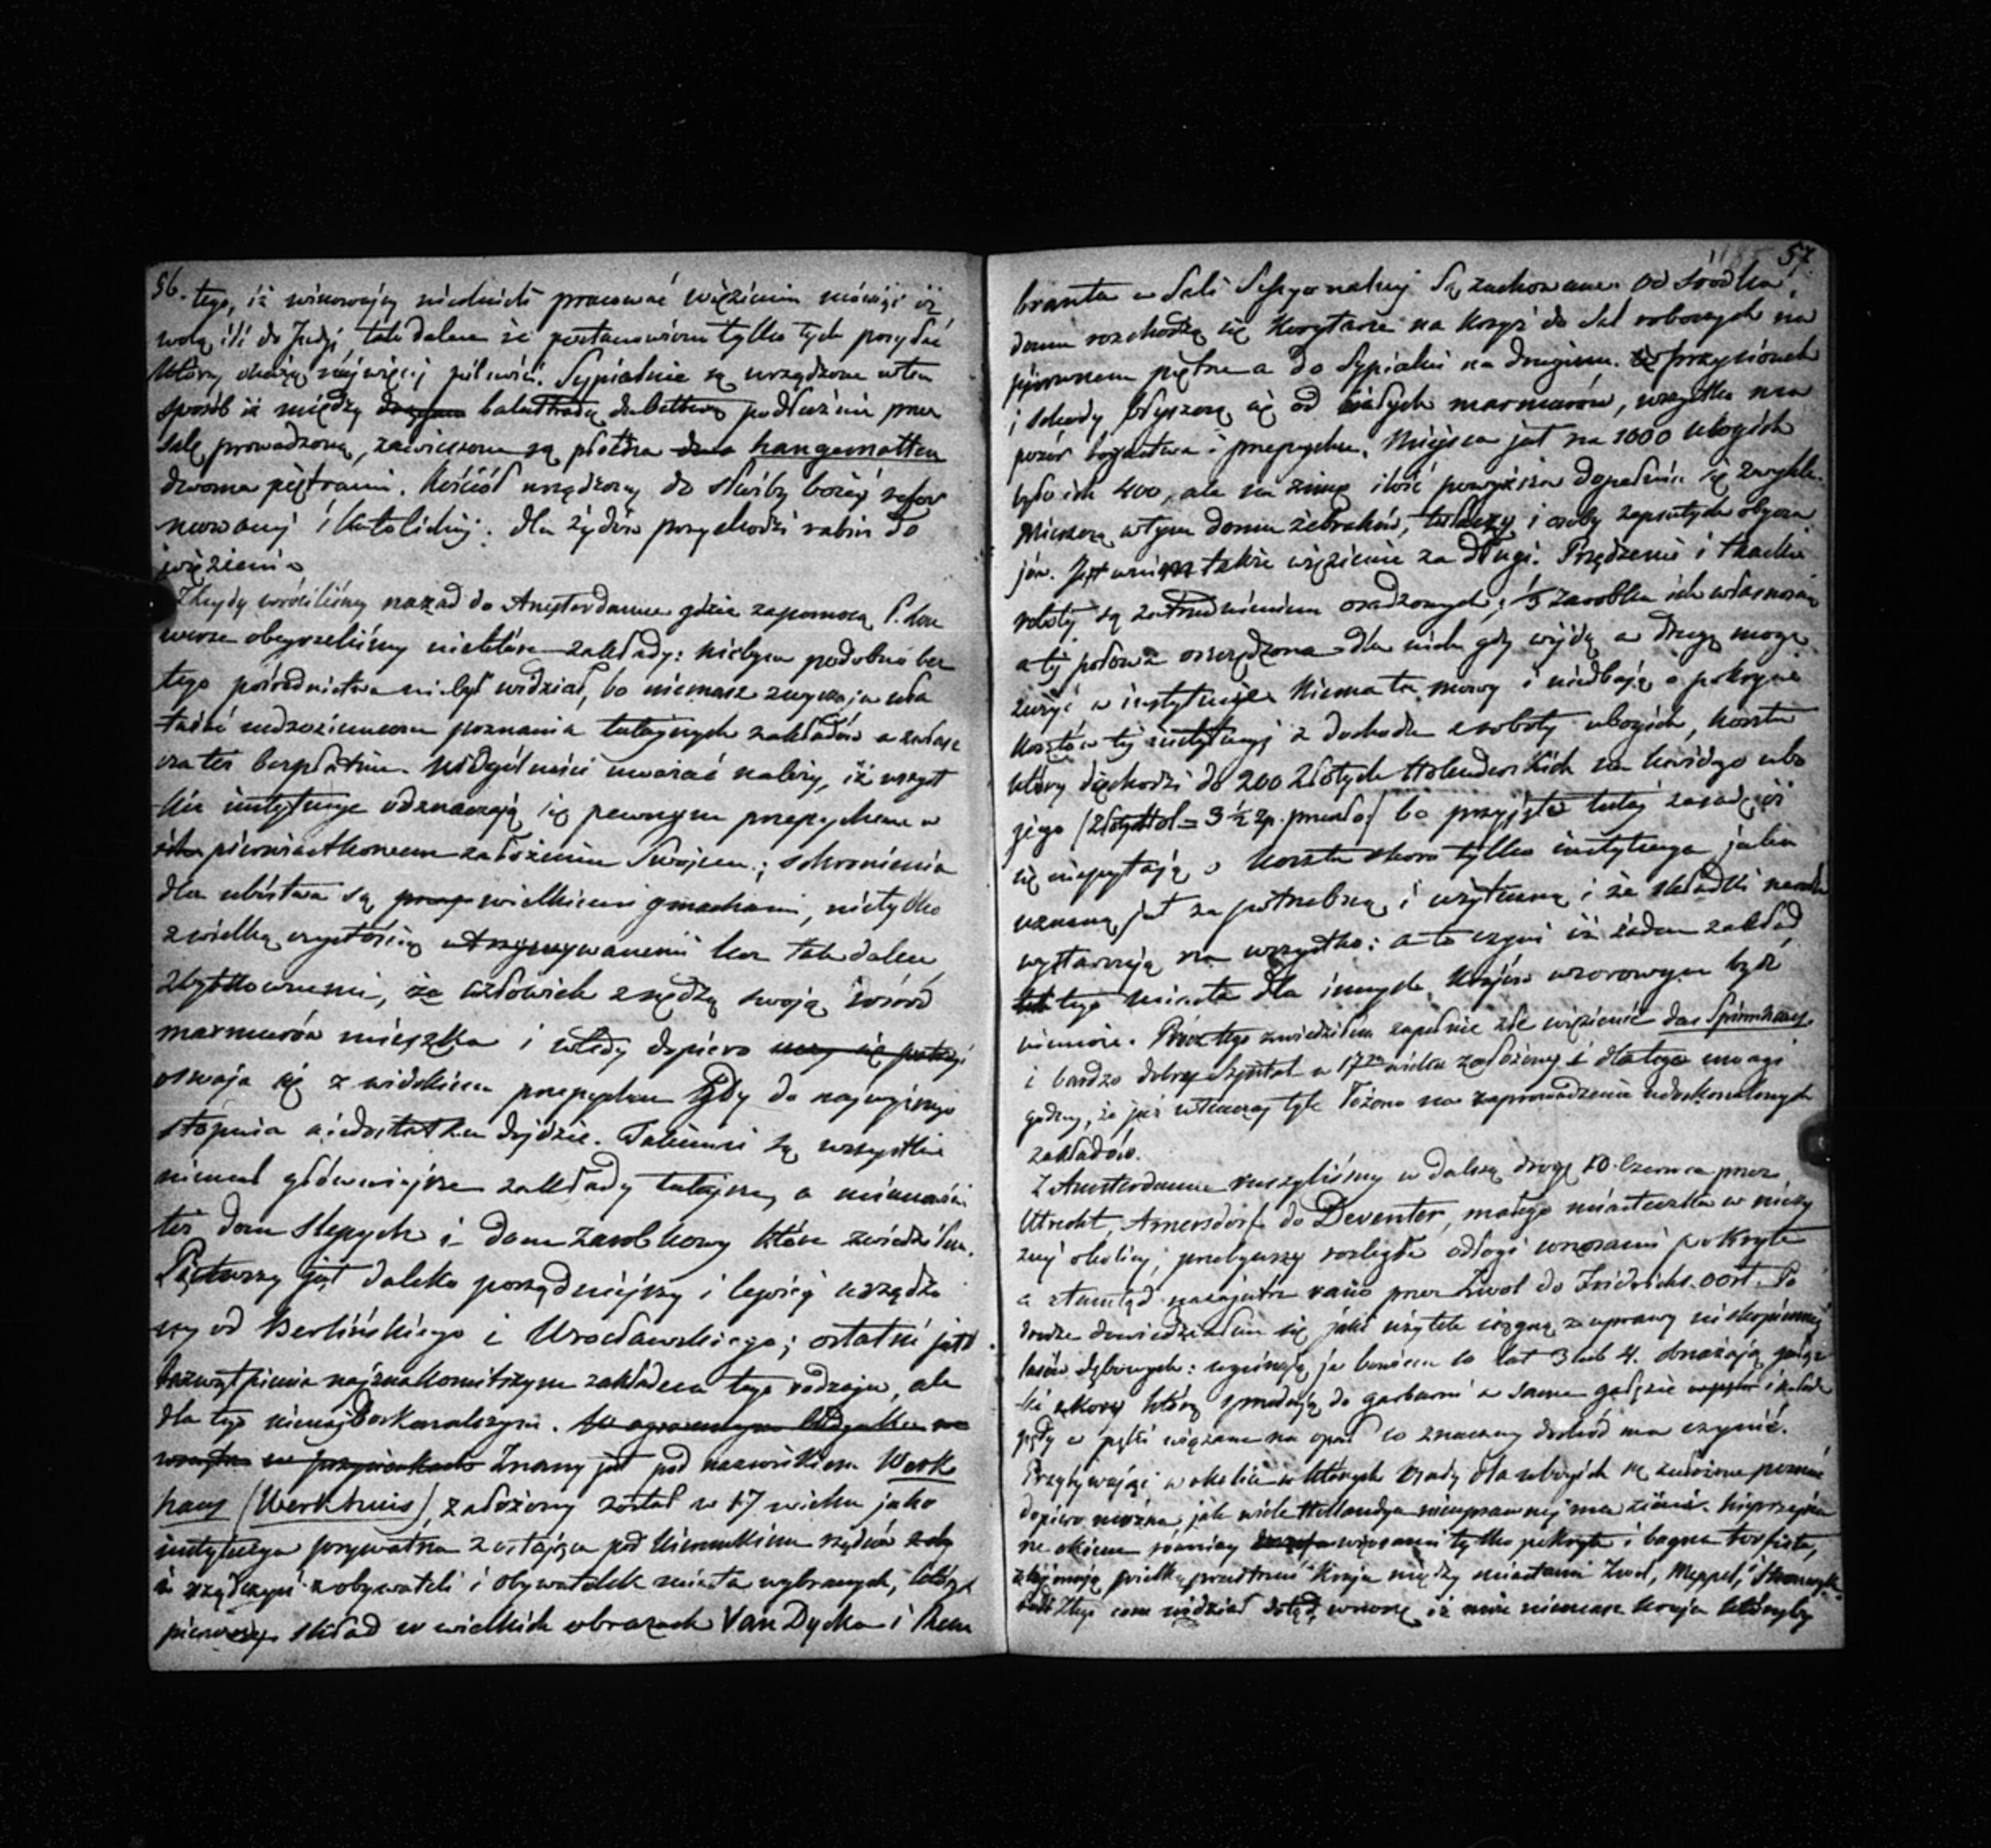 56.
tego, iż winowajcy niechcieli pracować więzieniu mówiąc iż
wolą iść do Indji tak dalece że postanowiono tylko tych posyłać
którzy okażą najwięcej pilności. Sypialnie są urządzone w ten
sposób iż między balustradą podłużnie przez
salę prowadzoną, zawieszone są płótna hangematten
dwoma piętrami. Kościół urządzony do służby bożej refor
mowanej i katolickiej. dla żydów przychodzi rabin do
więzienia
wróciliśmy nazad do Amsterdamu gdzie za pomocą P.
obejrzeliśmy niektóre zakłady: niebym podobno bez
tego pośrednictwa nie był widział, bo niemasz zwyczaju uła
twiać cudzoziemcom poznania tutejszych zakładów a zwłasz
cza też bezpłatnie. W ogólności uważać należy, iż wszyst
kie instytucye odznaczają się pewnym przepychem w
pierwiastkowem założeniu swojem; schronienia
dla ubóstwa są wielkiemi gmachami, nietylko
z wielką czystością utrzymywanemi lecz tak dalece
zbytkownemi, że człowiek z nędzą swoją wśród
marmurów mieszka i wtedy dopiero uczy się patrzyć
oswaja się z widokiem przepychu gdy do najwyższego
stopnia niedostatku dojdzie. Takiemi są wszystkie
niemal główniejsze zakłady tutejsze, a mianowicie
też dom ślepych i dom zarobkowy które zwiedziłem.
Pierwszy jest daleko porządniejszy i lepiej urządzo
ny od Berlińskiego i Wrocławskiego; ostatni jest
bezwątpienia najznakomitszym zakładem tego rodzaju, ale
dla tego nienajdoskonalszym. W ogromnym budynku
Znany jest pod nazwiskiem Werk
haus (Werkhuis), założony został w 17 wieku jako
instytucya prywatna zostająca pod kierunkiem rządców
i rządczyń z obywateli i obywatelek miasta wybranych, których
pierwszy skład w wielkich obrazach Van Dycka i Rem
57.
branta w Sali Sessyonalnej są zachowane. Od środka
domu rozchodzą się korytarze na krzyż do sal robotnych na
pierwszem piętrze a do sypialni na drugiem. przysionek
i schody błyszczą się od białych marmurów, wszystko ma
pozór bogactwa i przepychu. Miejsca jest na 1000 ubogich
było ich 400, ale na zimę ilość powyższa dopełnia się zwykle.
Mieszczą w tym domu żebraków, tułaczy i osoby zepsutych obycza
jów. Jest w nim także więzienie za długi. Przędzenie i tkackie
roboty są zatrudnieniem osadzonych; 1/3 zarobku ich własnością
a tej połowa oszczędzona dla nich gdy wyjdą a drugą mogą
zużyć w instytucyi. Niema tu mowy i niedbają o pokrycie
kosztów tej instytucyi z dochodu z roboty ubogich, kosztu
który dochodzi do 200 złotych Holenderskich na każdego ubo
giego (złoty Hol = 3 1/2 zp. przeszło) bo przyjęto tutaj zasadę iż
się niepytają o koszta skoro tylko instytucya jaka
uznaną jest za potrzebną i użyteczną i że składki narodu
wystarczają na wszystko: a to czyni iż żaden zakład
tego miasta dla innych krajów wzorowym być
niemoże. Prócz tego zwiedziłem zupełnie złe więzienie das Spinnhaus
i bardzo dobry szpital w 17m wieku założony i dlatego uwagi
godny, że już wtenczas tyle łożono na zaprowadzenie udoskonalonych
zakładów.
Z Amsterdamu ruszyliśmy w dalszą drogę 10. Czerwca przez
Utrecht, Amersdorf do Deventer, małego miasteczka w nizy
znej okolicy, przebywszy rozległe odłogi wrzosami pokryte
a ztamtąd nazajutrz rano przez Zwol do Fridrichs-oort. Po
drodze dowiedziałem się jaki użytek ciągną z uprawy niskopiennej
lasów dębowych: wycinają je bowiem co lat 3 lub 4. obnażają gałąz
ki z kory którą sprzedają do garbarni a same gałęzie
pęty w pęki wiązane na opał co znaczny dochód ma czynić.
Przybywając w okolice w których osady dla ubogich są założone poznać
dopiero można, jak wiele Hollandya nieuprawnej ma ziemi. Nieprzejrza
ne okiem równiny wrzosami tylko pokryte i bagna torfiste,
zajmują wielką przestrzeń kraju między miastami Zwol, Meppel, Steenwyk
Z tego com widział dotąd wnoszę iż może niemasz kraju któryby